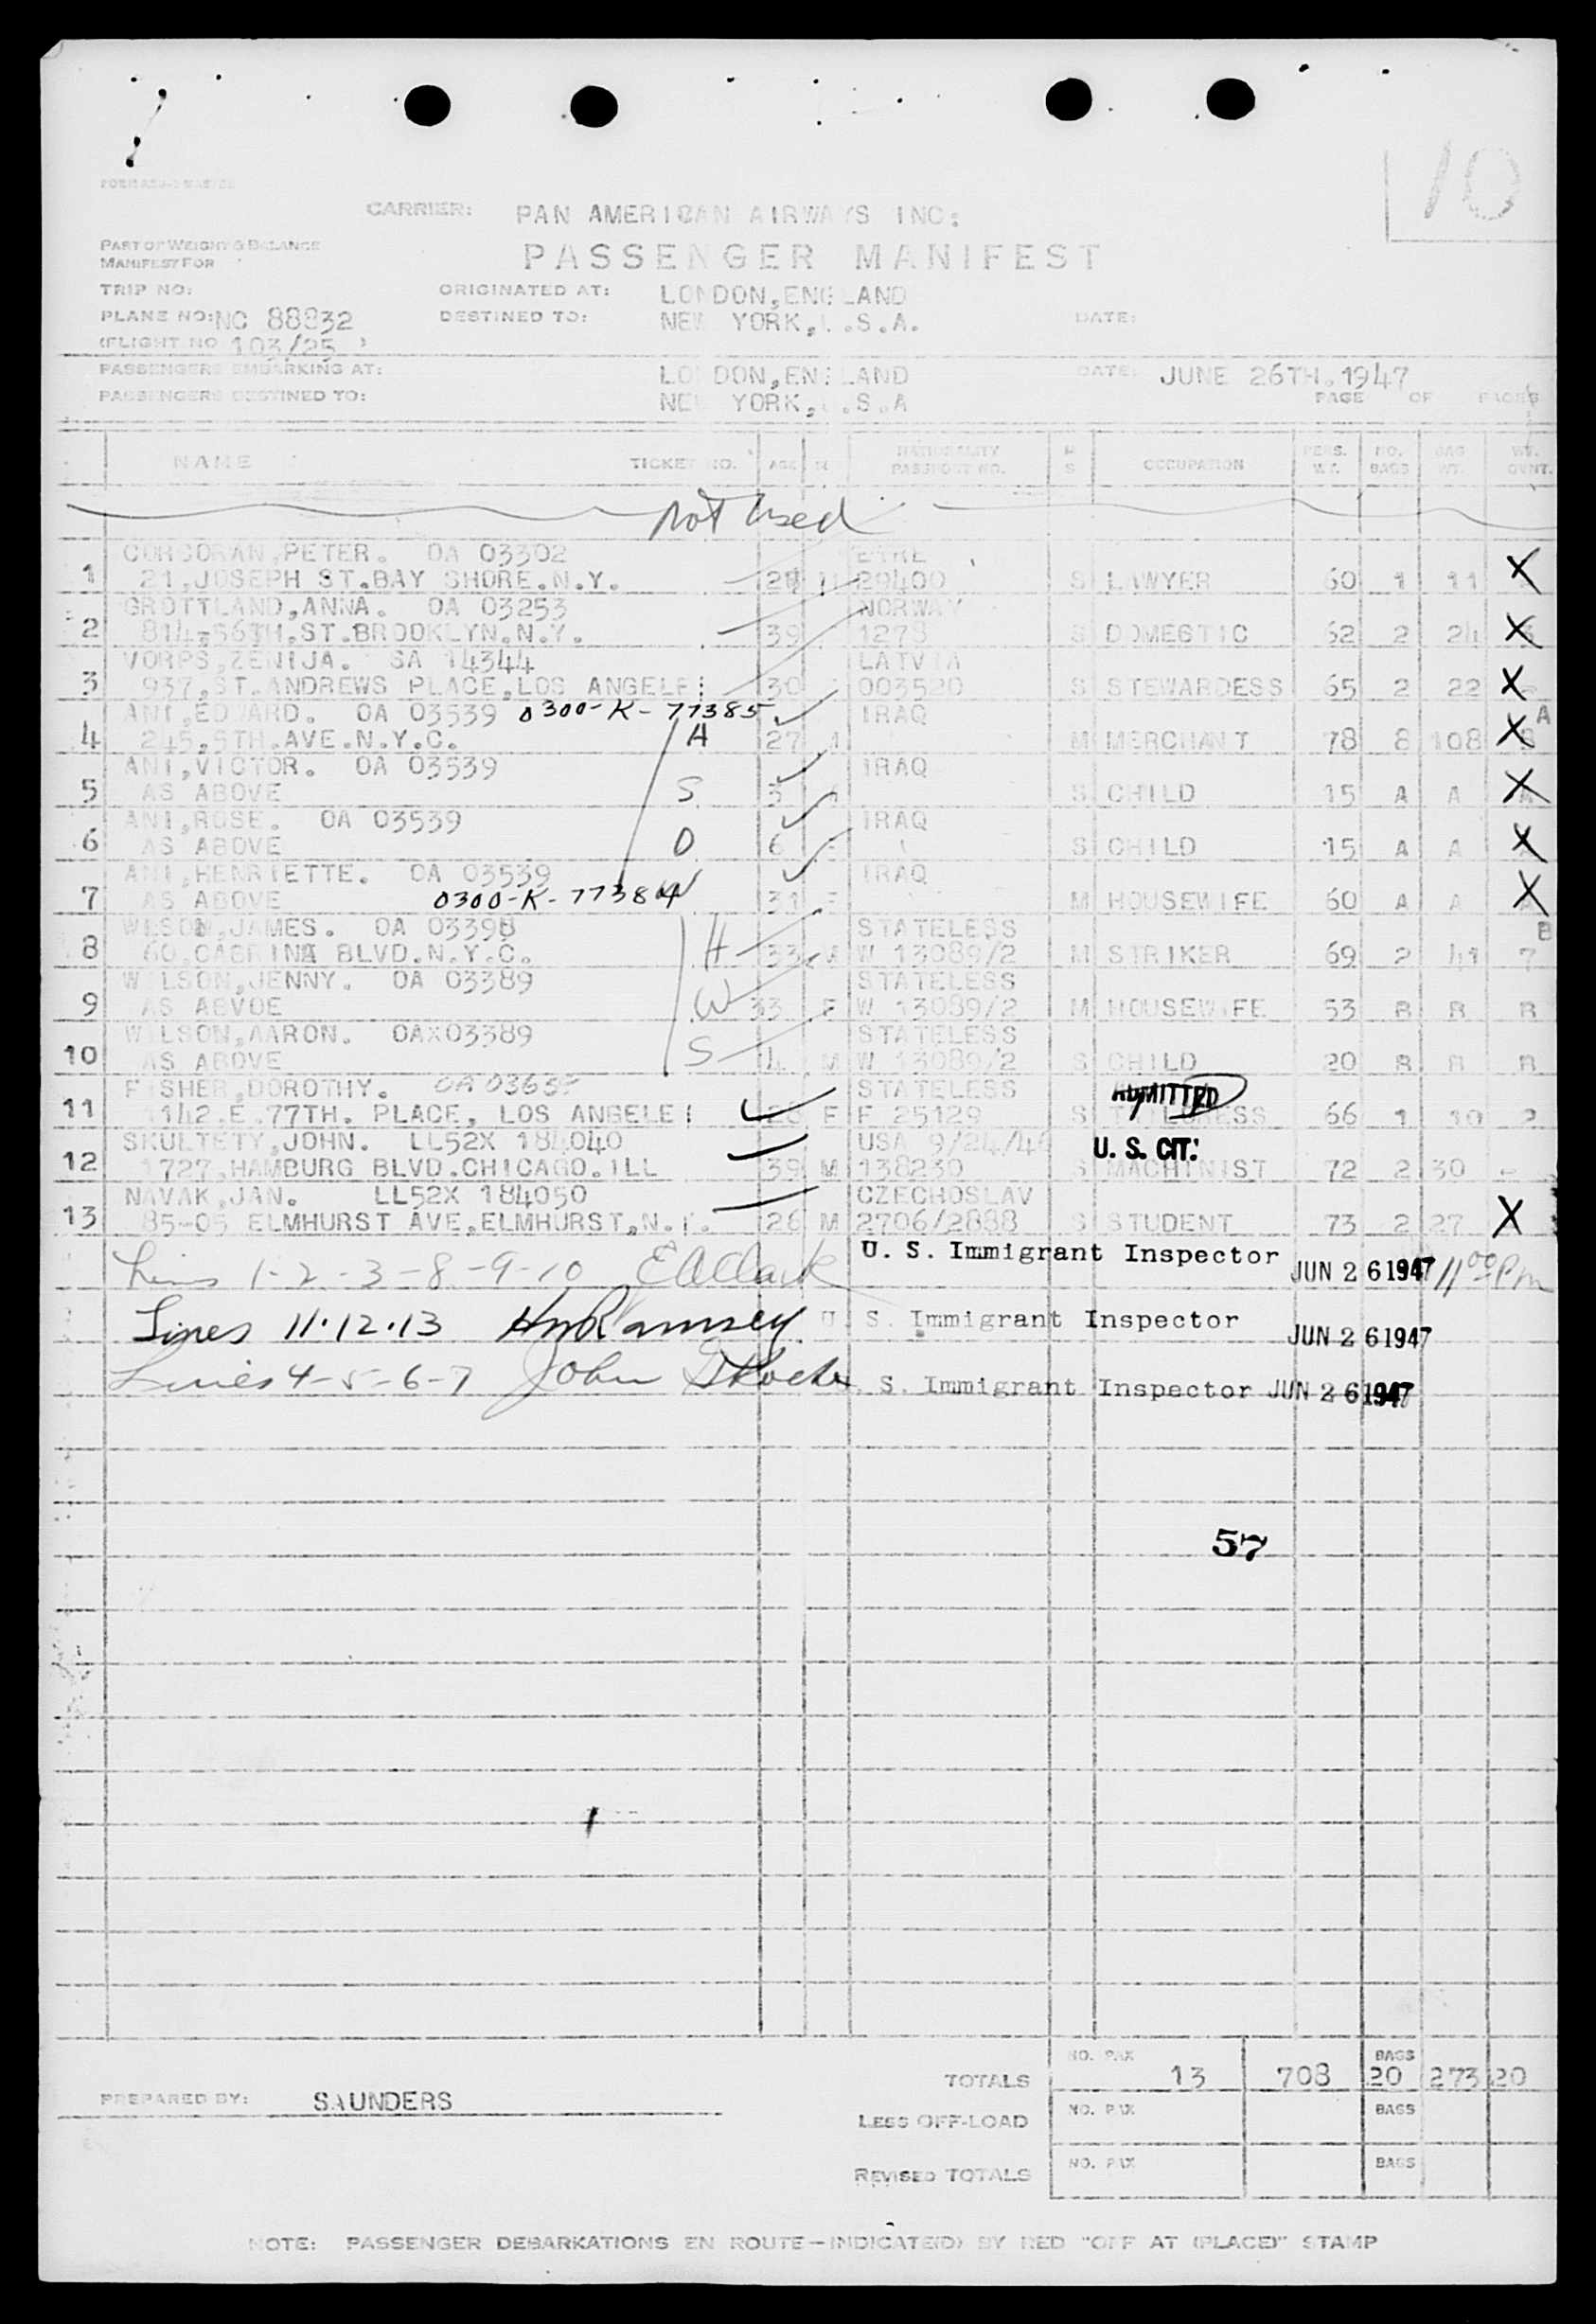 10
CARRIER: PAN AMERICAN AIRWAYS INC:
PART OF WEIGHT & BALANCE
MANIFEST FOR
PASSENGER MANIFEST
TRIP NO: ORIGINATED AT: LONDON, ENGLAND
PLANE NO: NC 88832 DESTINED TO: NEW YORK, U.S.A. DATE:
(FLIGHT NO 103/25 )
PASSENGERS EMBARKING AT: LONDON, ENGLAND DATE: JUNE 26TH.1947
PASSENGERS DESTINED TO: NEW YORK, U.S.A PAGE OF PAGES
NAME TICKET NO. AGE NATIONALITY PASSPORT NO. M S OCCUPATION PERS. WT. NO. BAGS BAG WT. WT. OVNT.
Not Used
CORCORAN,PETER. OA 03302 EIRE
1 21,JOSEPH ST.BAY SHORE.N.Y. 29400 S LAWYER 60 1 11 X
GROTTLAND,ANNA. OA 03253 NORWAY
2 814-56TH.ST.BROOKLYN.N.Y. 39 1278 S DOMESTIC 52 2 24 X
VORPS,ZENIJA. SA 14344 LATVIA
3 937,ST.ANDREWS PLACE,LOS ANGELE 30 003520 S STEWARDESS 65 2 22 X
ANI,EDWARD. OA 03539 0300-K-77385 IRAQ A
4 245,5TH.AVE.N.Y.C. H 27 M M MERCHANT 78 8 108 X
ANI,VICTOR. OA 03539 IRAQ
5 AS ABOVE S 3 S CHILD 15 A A X
ANI,ROSE. OA 03539 IRAQ
6 AS ABOVE D 6 F S CHILD 15 A A X
ANI,HENRIETTE. OA 03539 IRAQ
7 AS ABOVE 0300-K-77384 W 31 F M HOUSEWIFE 60 A A X
WILSON,JAMES. OA 03398 STATELESS B
8 60.CABRINA BLVD.N.Y.C. H 33 M W 13089/2 M STRIKER 69 2 41 7
WILSON,JENNY. OA 03389 STATELESS
9 AS ABVOE W 33 F W 13089/2 M HOUSEWIFE 53 B B B
WILSON,AARON. OAX03389 STATELESS
10 AS ABOVE S 4 M W 13089/2 S CHILD 20 B B B
FISHER,DOROTHY. STATELESS ADMITTED
11 1142.E.77TH. PLACE, LOS ANGELE F F 25129 S 66 1 10 2
SKULTETY,JOHN. LL52X 184040 USA 9/24/46 U. S. CIT.
12 1727,HAMBURG BLVD.CHICAGO.ILL 39 M 138230 S MACHINIST 72 2 30 -
NAVAK,JAN. LL52X 184050 CZECHOSLAV
13 85-05 ELMHURST AVE,ELMHURST,N.Y. 26 M 2706/2888 S STUDENT 73 2 27 X
Lines 1-2-3-8-9-10 E A Clark U. S. Immigrant Inspector JUN 26 1947 11 00 Pm
Lines 11.12.13 Hm Ramsey U. S. Immigrant Inspector JUN 26 1947
Lines 4-5-6-7 John U. S. Immigrant Inspector JUN 26 1947
57
TOTALS NO. PAX 13 708 BAGS 20 273 20
PREPARED BY: SAUNDERS
LESS OFF-LOAD NO. PAX BAGS
REVISED TOTALS NO. PAX BAGS
NOTE: PASSENGER DEBARKATIONS EN ROUTE—INDICATE(D) BY RED "OFF AT (PLACE)" STAMP